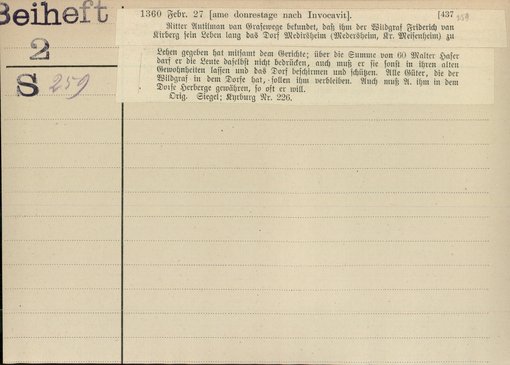 Beiheft
2
S 259
1360 Febr. 27 [ame donrestage nach Invocavit]. [437 259
Ritter Antilman van Grasewege bekundet, daß ihm der Wildgraf Friderich van
Kirberg sein Leben lang das Dorf Medirsheim (Medersheim, Kr. Meisenheim) zu
Lehen gegeben hat mitsamt dem Gerichte; über die Summe von 60 Malter Hafer
darf er die Leute daselbst nicht bedrücken, auch muß er sie sonst in ihren alten
Gewohnheiten lassen und das Dorf beschirmen und schützen. Alle Güter, die der
Wildgraf in dem Dorfe hat, sollen ihm verbleiben. Auch muß A. ihm in dem
Dorfe Herberge gewähren, so oft er will.
Orig. Siegel; Kyrburg Nr. 226.